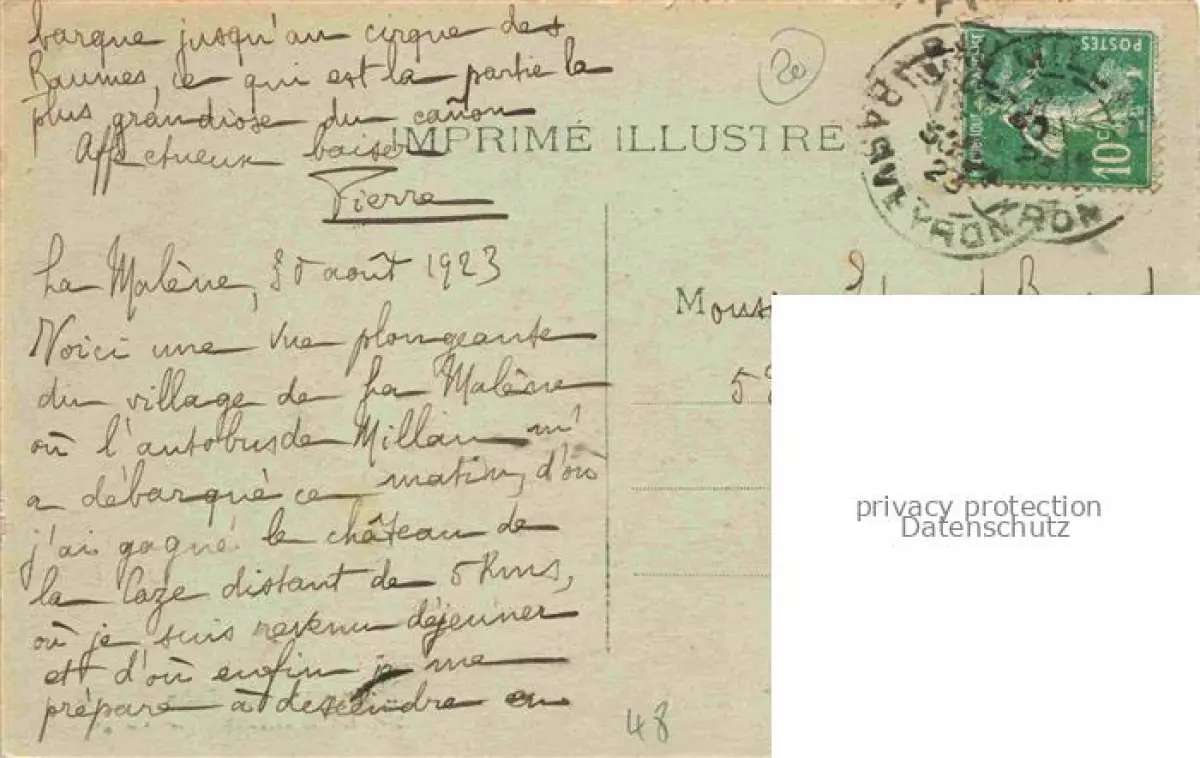 barque jusqu'au cirque des
Baumes, ce qui est la partie la
plus grandiose du cañon
Affectueux baisers
IMPRIMÉ ILLUSTRÉ
Pierre
La Malène, 30 août 1923
Voici une vue plongeante
du village de La Malène
où l'autobus de Millau m'
a débarqué ce matin, d'où
j'ai gagné le château de
la Caze distant de 5 Kms,
où je suis revenu déjeuner
et d'où enfin je me
prépare à descendre en
20
POSTES
10c
AVEYRON
48
privacy protection
Datenschutz